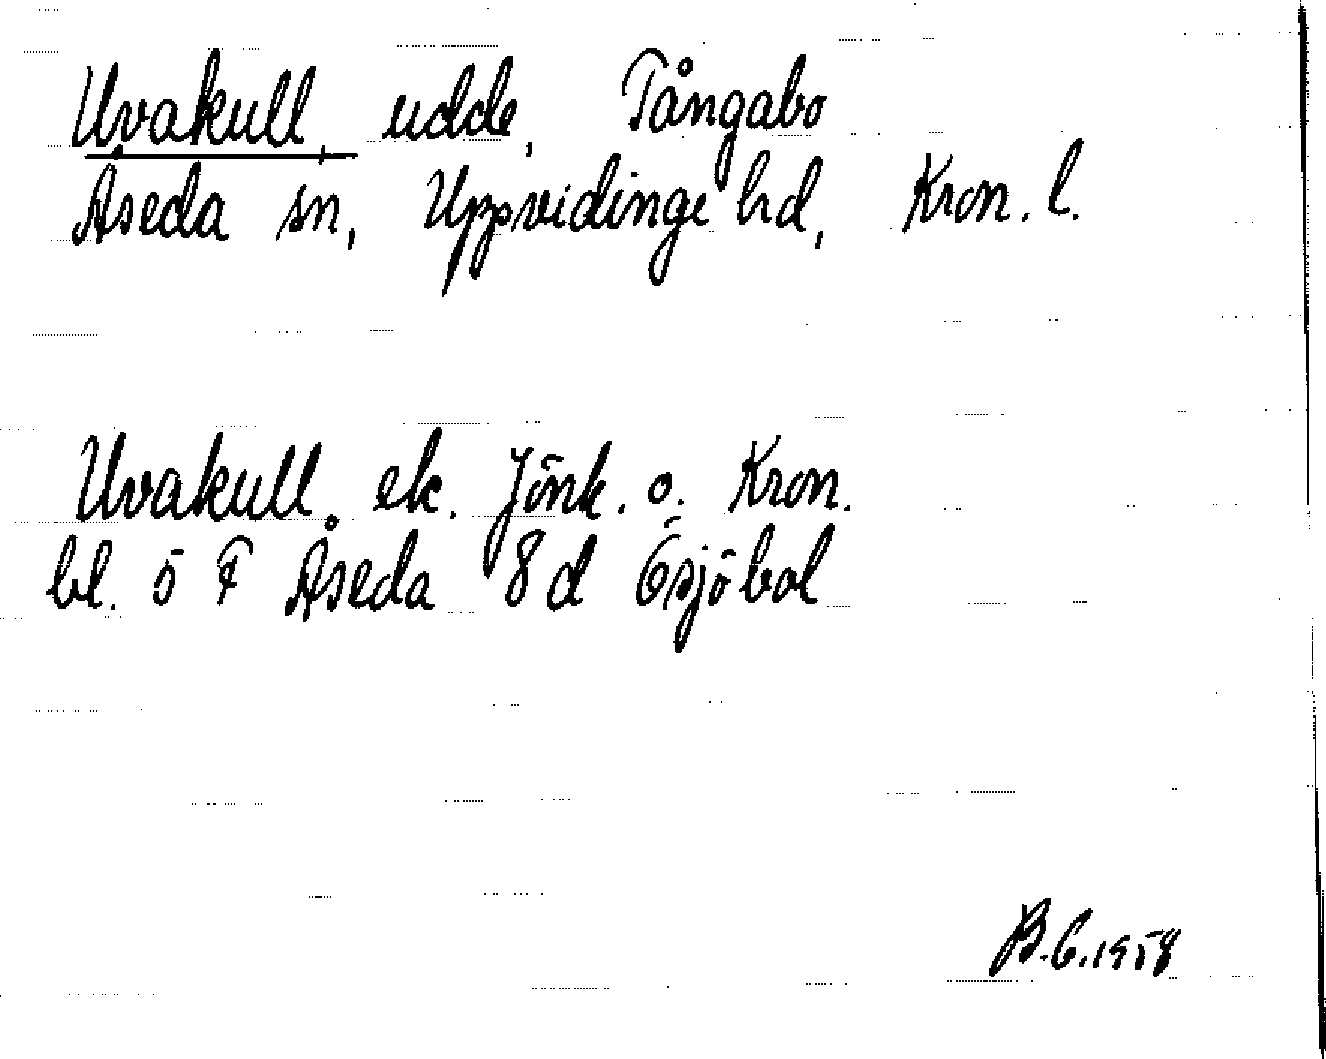 Uvakull, udde, Tångabo
Åseda sn, Uppvidinge hd, Kron. l.
Uvakull. ek. Jönk. o. Kron.
bl. 5 F Åseda 8 d Ösjöbol
B.G. 1958